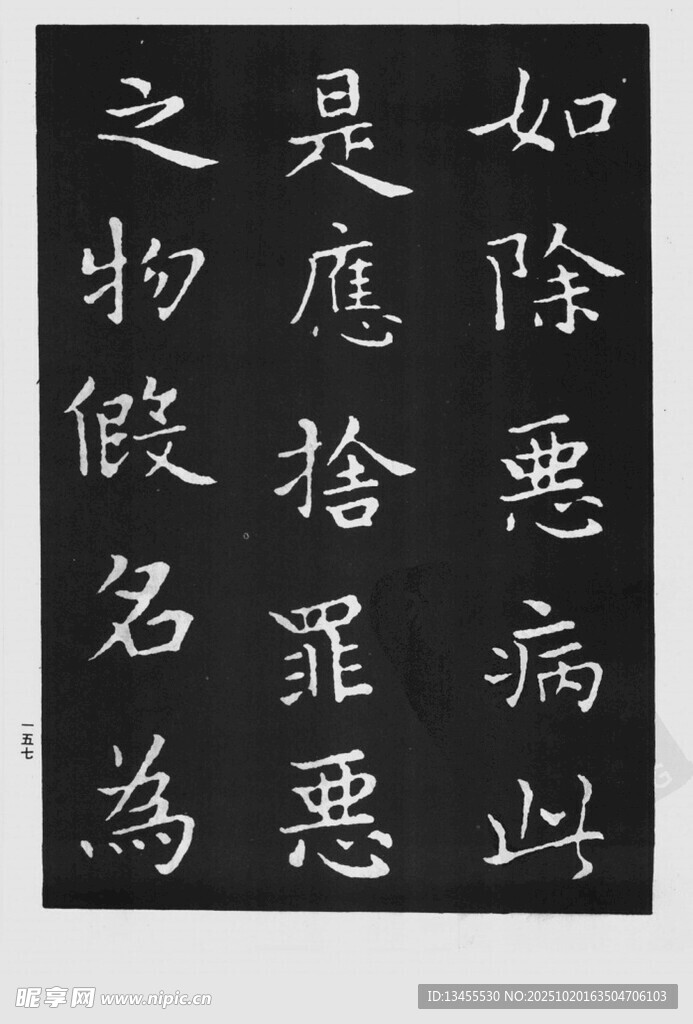 如除惡病此
是應捨罪惡
之物假名為
一五七
昵享网 www.nipic.cn
ID:13455530 NO:20251020163504706103